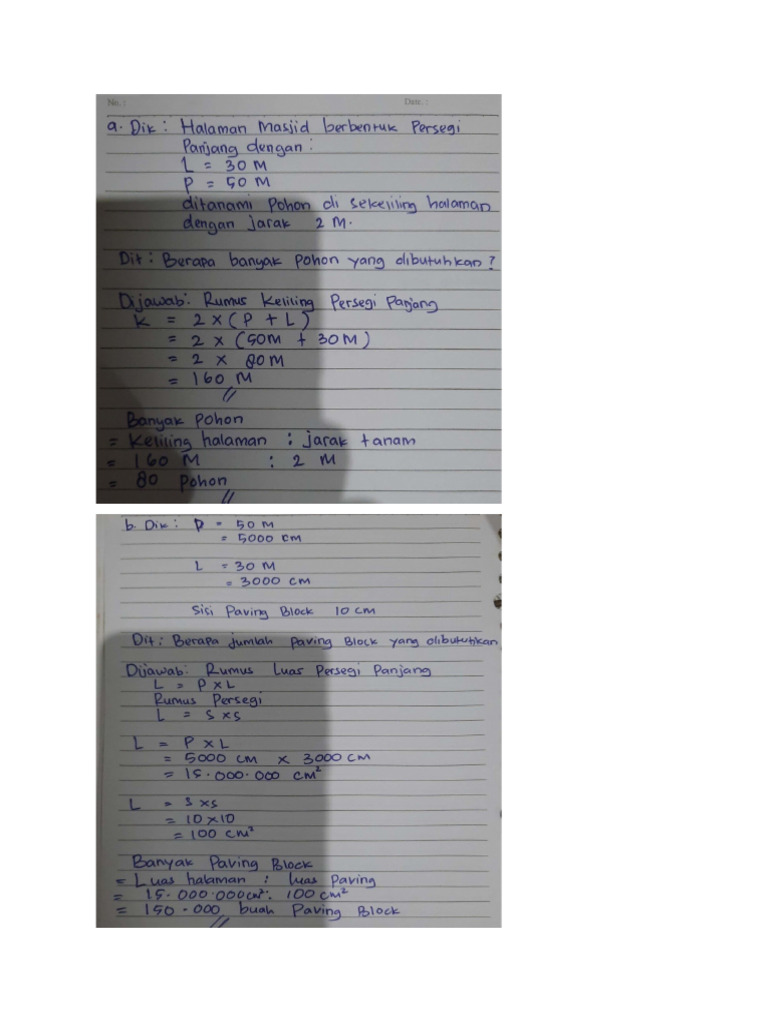 No. :
Date. :
a. Dik : Halaman Masjid berbentuk Persegi
Panjang dengan :
L = 30 M
P = 50 M
ditanami Pohon di sekeliling halaman
dengan jarak 2 M.
Dit : Berapa banyak pohon yang dibutuhkan ?
Dijawab : Rumus Keliling Persegi Panjang
K = 2 x ( P + L )
= 2 x (50M + 30M )
= 2 x 80M
= 160 M
Banyak Pohon
= Keliling halaman : jarak tanam
= 160 M : 2 M
= 80 Pohon
b. Dik : P = 50 M
= 5000 cm
L = 30 M
= 3000 cm
Sisi Paving Block 10 cm
Dit : Berapa jumlah Paving Block yang dibutuhkan
Dijawab : Rumus Luas Persegi Panjang
L = P x L
Rumus Persegi
L = s x s
L = P x L
= 5000 cm x 3000 cm
= 15.000.000 cm²
L = s x s
= 10 x 10
= 100 cm²
Banyak Paving Block
= Luas halaman : luas Paving
= 15.000.000cm² : 100 cm²
= 150.000 buah Paving Block